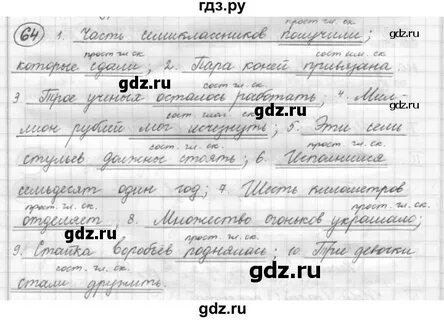 гдз.ру
прост.гл.ск.
64 1. Часть семиклассников получили;
прост.гл.ск. сост.им.ск.
которые сдали; 2. Пара коней привязана
сост.гл.ск.
3. Трое ученых осталось работать; 4. Мил-
сост.глаг.ск.
лион рублей мог исчезнуть; 5. Эти семь
сост.гл.ск. прост.гл.ск.
стульев должны стоять; 6. Исполнился
семьдесят один год; 7. Шесть километров
прост.гл.ск. прост.гл.ск.
отделяет 8. Множество огоньков украшало;
прост.гл.ск.
9. Стайка воробьев поднялась; 10. Три девочки
сост.гл.ск.
стали дружить.
гдз.ру